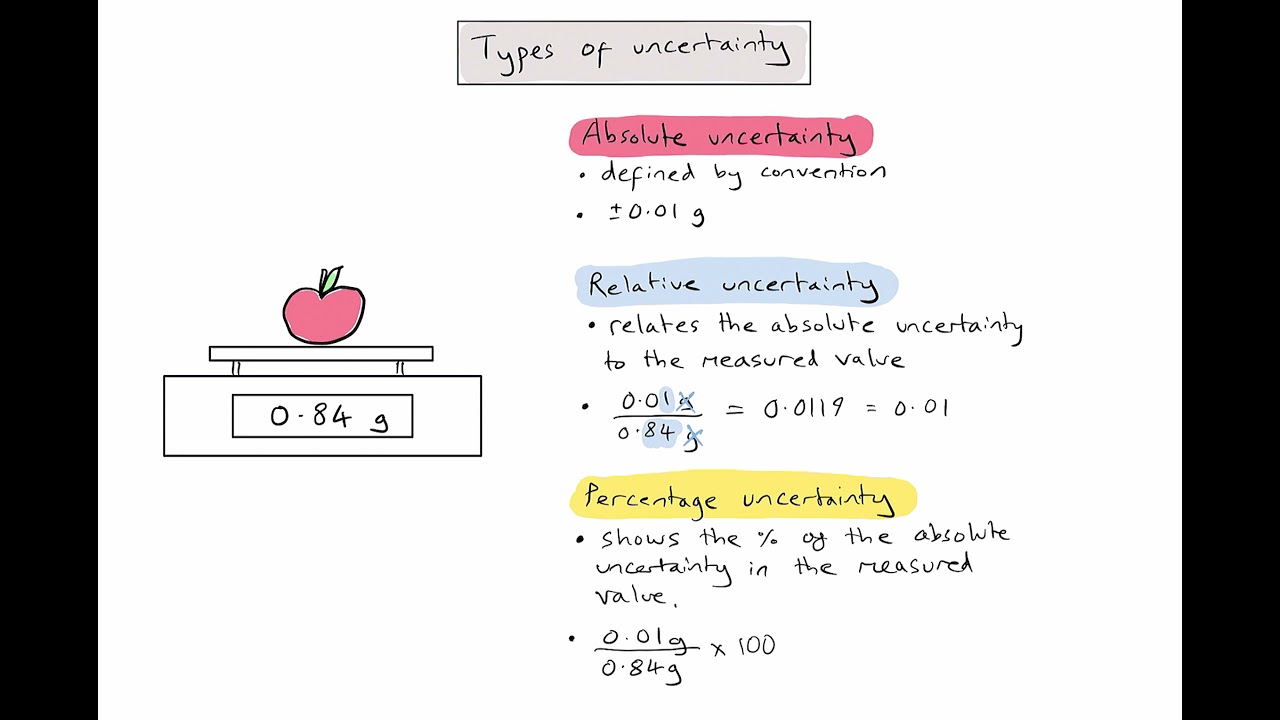 Types of uncertainty
Absolute uncertainty
• defined by convention
• ±0.01 g
0.84 g
Relative uncertainty
• relates the absolute uncertainty
to the measured value
• 0.01g / 0.84 g = 0.0119 = 0.01
Percentage uncertainty
• shows the % of the absolute
uncertainty in the measured
value.
• 0.01g / 0.84g × 100